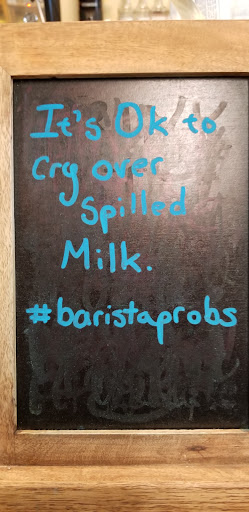 It's Ok to
Cry over
Spilled
Milk.
#baristaprobs